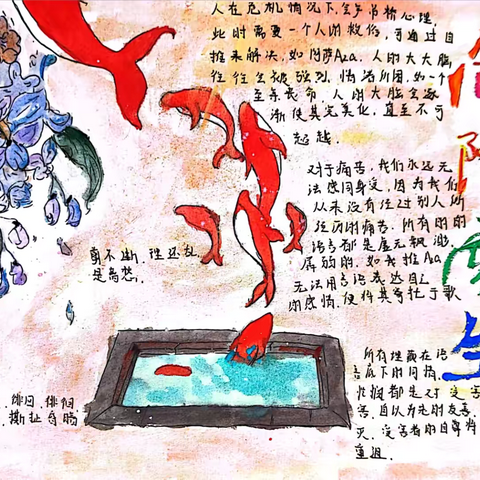 人在危机情况下,会产吊桥心理,
此时需要一个人的救赎,可通过自
推来解决,如阿萨Aza,人的大大脑
往往会被强烈情绪所困,如一个
至亲丧命,人的大脑会逐
渐使其完美化,直至不可
超越.
对于痛苦,我们永远无
法感同身受,因为我们
从来没有经过别人所
经历的痛苦.所有的的
语言都是虚无飘渺
孱弱的.如我推Aza
无法用言语表达自己
的感情,便将其寄托于歌
剪不断,理还乱
是离愁.
徘徊,徘徊
撕扯
所有埋藏在语
言底下的同情,
都是对受害
害,自以为是的友善,
灭.受害者的自尊将
重组.